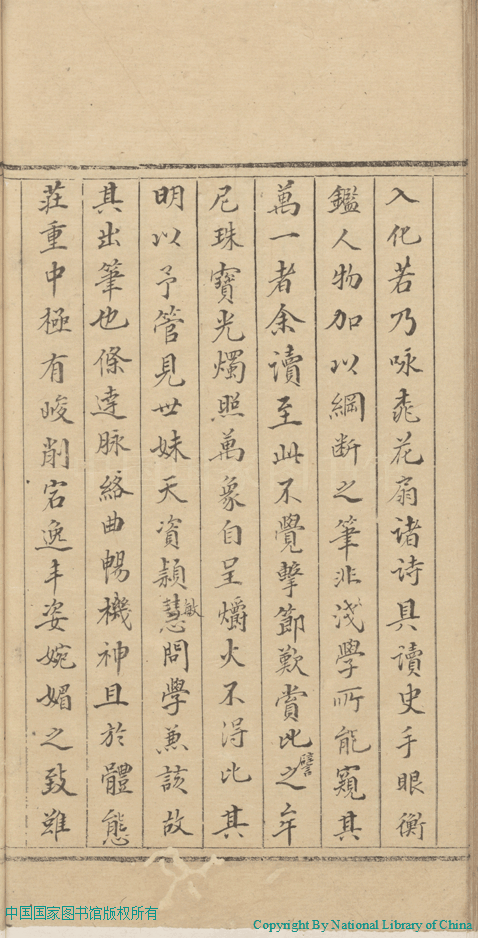 入化若乃咏桃花扇诸诗具讀史手眼衡
鑑人物加以綱断之筆非淺學所能窺其
萬一者余讀至此不覺擊節歎賞比之牟
譬
尼珠寶光燭照萬象自呈爝火不淂比其
明以予管見世妹天資穎慧問學兼該故
敏
其出筆也條達脉絡曲暢機神且於體態
莊重中極有峻削宕逸丰姿婉媚之致雖
中国国家图书馆版权所有
Copyright By National Library of China